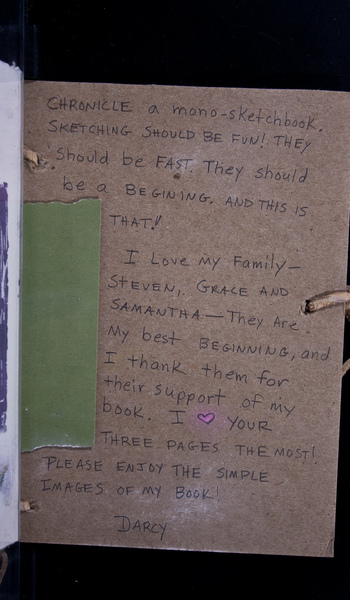 CHRONICLE a mono-sketchbook.
SKETCHING SHOULD BE FUN!. THEY
should be FAST. They should
be a BEGINING. AND THIS IS
THAT!
I Love my Family—
STEVEN, GRACE AND
SAMANTHA—They Are
My best BEGINNING, and
I thank them for
their support of my
book. I ♡ YOUR
THREE PAGES THE MOST!
PLEASE ENJOY THE SIMPLE
IMAGES OF MY BOOK!
DARCY